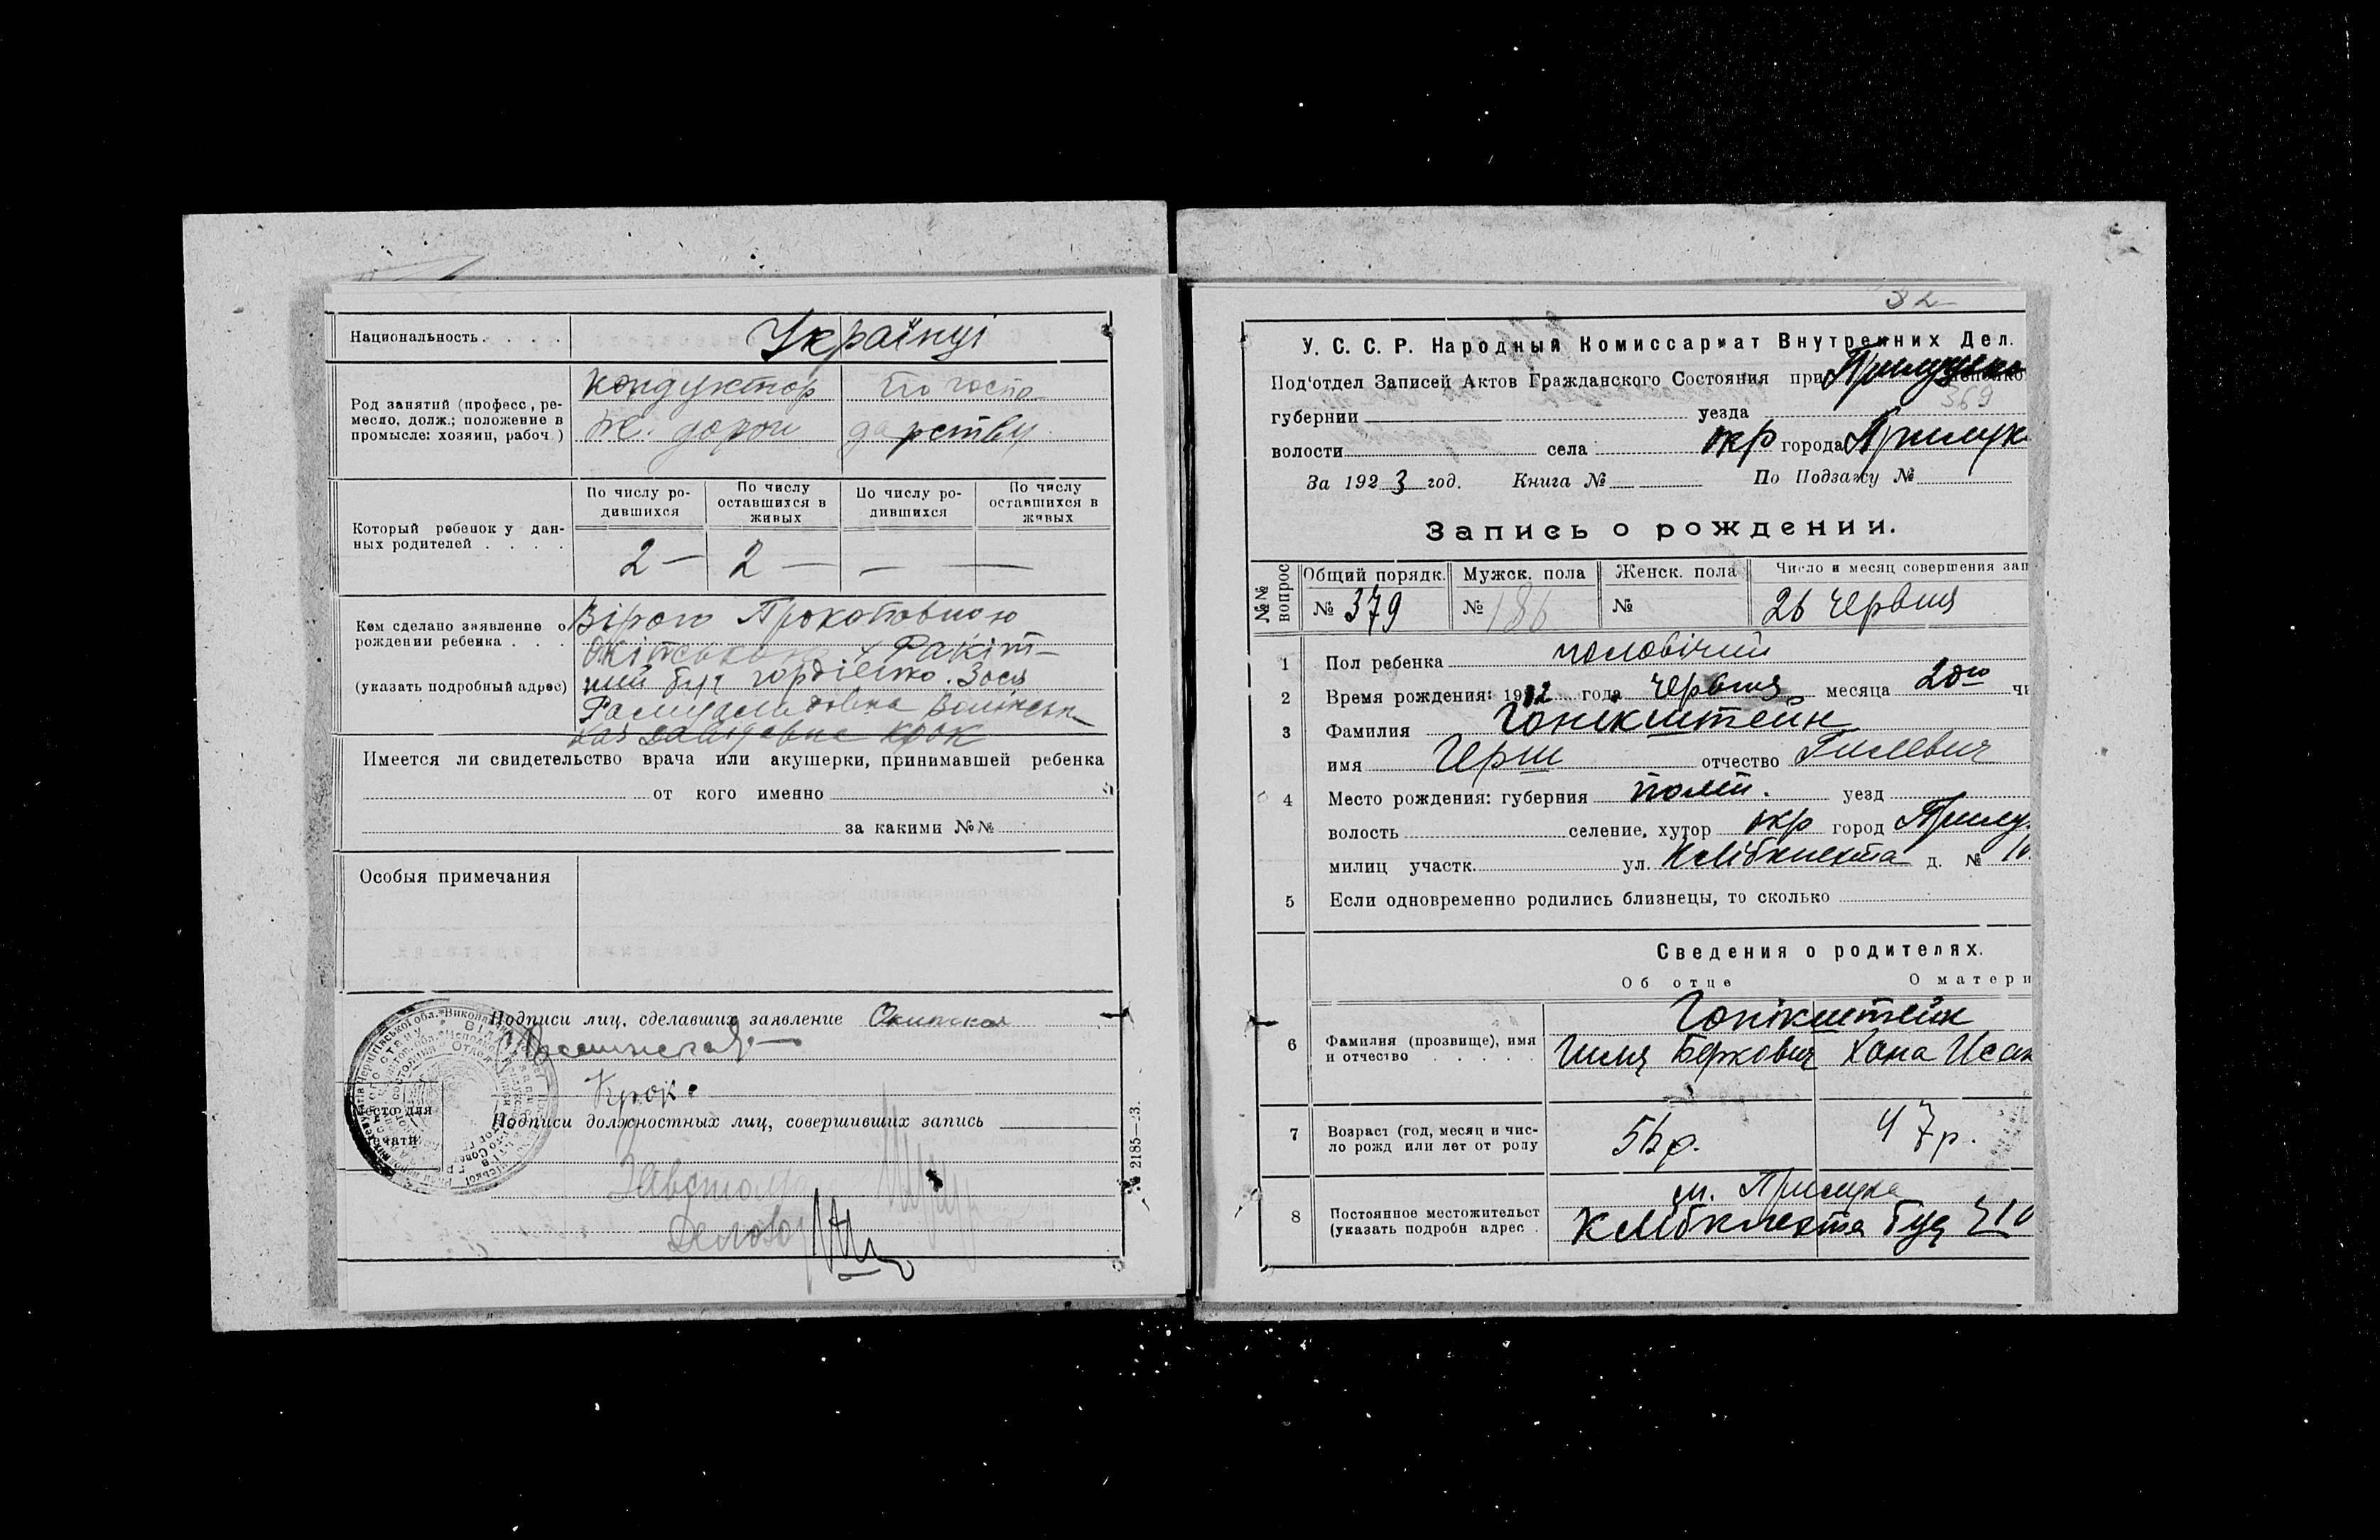 Национальность . . . . Українці
Род занятий (професс, ре-
месло, долж.; положение в
промысле: хозяин, рабоч.)
кондуктор
по госпо-
дарству
По числу ро-
дившихся
По числу
оставшихся в
живых
По числу ро-
дившихся
По числу
оставшихся в
живых
Который ребенок у дан-
ных родителей . . . .
2 — 2 — — —
Кем сделано заявление о
рождении ребенка . . .
(указать подробный адрес)
Вірою Прокоповною
Имеется ли свидетельство врача или акушерки, принимавшей ребенка
от кого именно
за какими №№
Особыя примечания
Подписи лиц, сделавших заявление
Крок
Место для
печати
Подписи должностных лиц, совершивших запись
2185—23.
32
У. С. С. Р. Народный Комиссариат Внутренних Дел.
Под'отдел Записей Актов Гражданского Состояния при
369
губернии уезда
волости села окр города Прилук
За 1923 год. Книга № По Подзажу №
Запись о рождении.
№№ вопрос
Общий порядк. Мужск. пола Женск. пола Число и месяц совершения зап
№ 379 № 186 № 26 червня
1 Пол ребенка чоловічий
2 Время рождения: года червня месяца 20го чи
3 Фамилия Гонікштейн
имя Герш отчество Гилевич
4 Место рождения: губерния полт. уезд
волость селение, хутор окр город Прилу
милиц участк. ул. К Лібкнехта д. № 10
5 Если одновременно родились близнецы, то сколько
Сведения о родителях.
Об отце О матери
6 Фамилия (прозвище), имя
и отчество . . . . .
Гонікштейн
Гиля Беркович Хана Исак
7 Возраст (год, месяц и чис-
ло рожд или лет от роду
47р.
8 Постоянное местожительст
(указать подробн адрес .
м. Прилука
К Лібкнехта буд 10